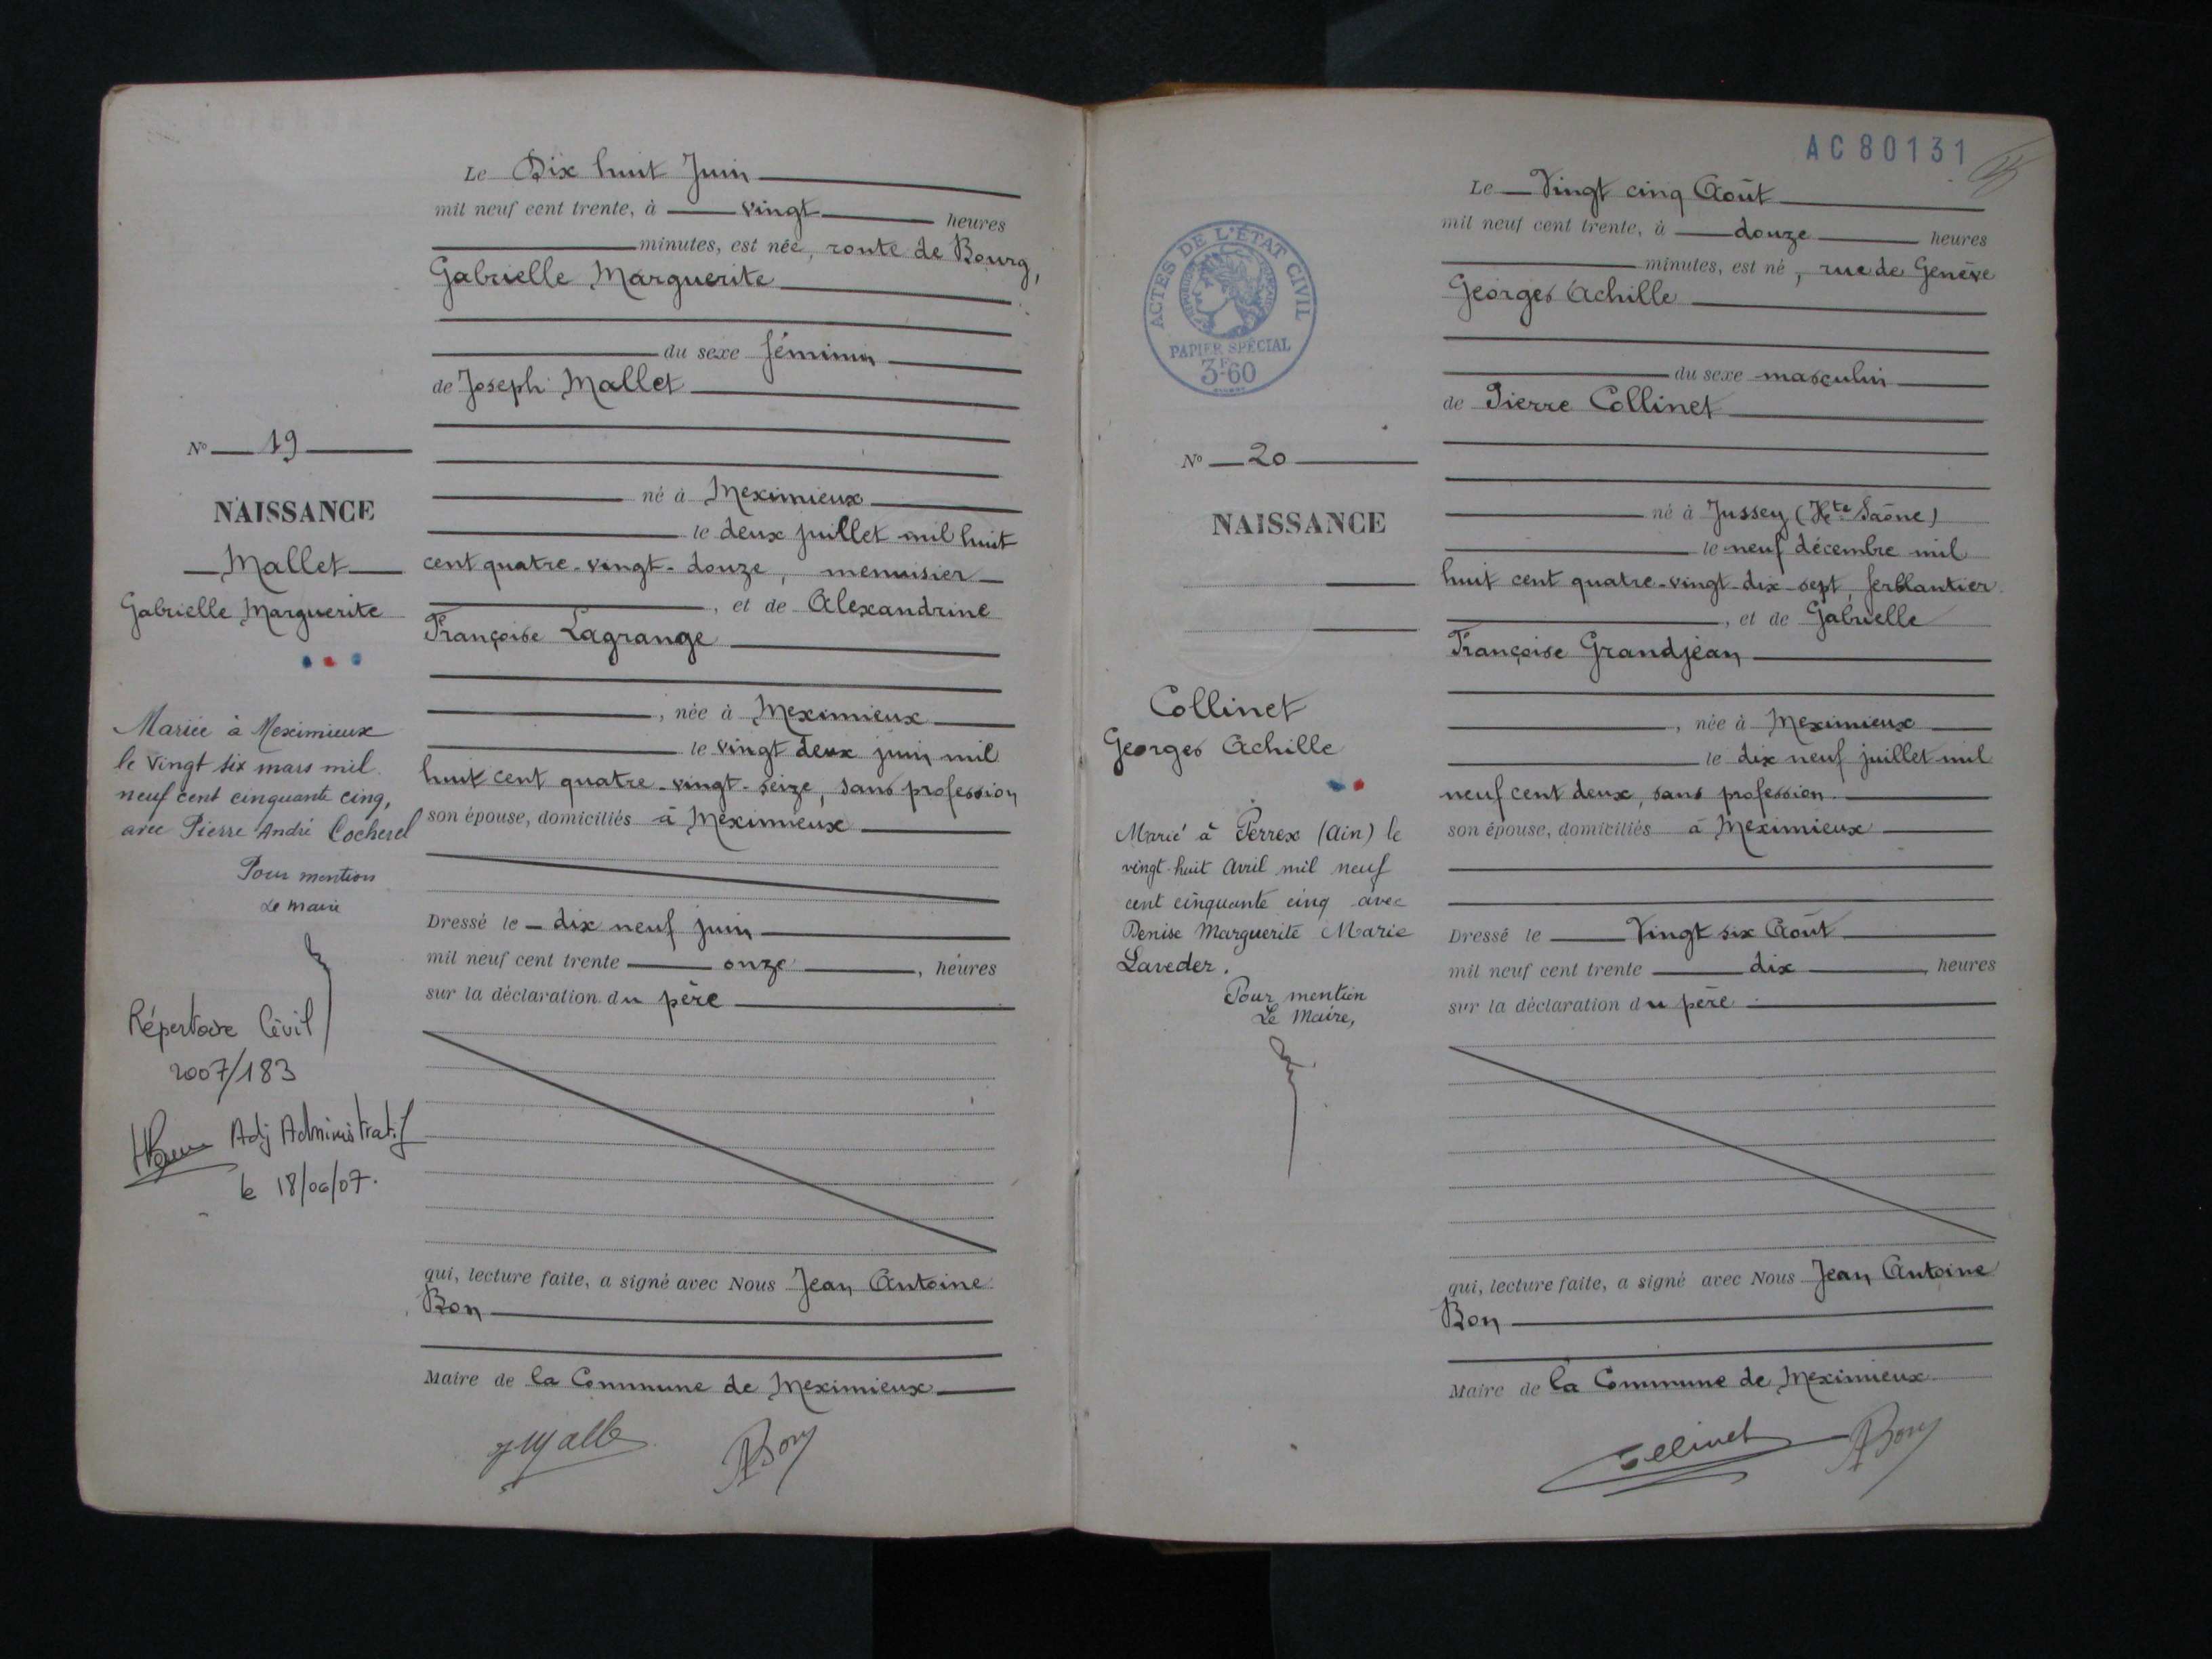 Le Dix huit Juin
mil neuf cent trente, à vingt heures
minutes, est née, route de Bourg,
Gabrielle Marguerite
du sexe féminin
de Joseph Mallet
né à Meximieux
le deux juillet mil huit
cent quatre-vingt-douze, menuisier
, et de Alexandrine
Françoise Lagrange
, née à Meximieux
le vingt deux juin mil
huit cent quatre-vingt-seize, sans profession
son épouse, domiciliés à Meximieux
Dressé le dix neuf juin
mil neuf cent trente onze, heures
sur la déclaration du père
qui, lecture faite, a signé avec Nous Jean Antoine
Bon
Maire de la Commune de Meximieux
JMalle
ABon
N° 19
NAISSANCE
Mallet
Gabrielle Marguerite
Mariée à Meximieux
le vingt six mars mil
neuf cent cinquante cinq,
avec Pierre André Cocherel
Pour mention
Le Maire
Répertoire Civil
2007/183
Adj Administratif
le 18/06/07.
AC 80131
Le Vingt cinq Août
mil neuf cent trente, à douze heures
minutes, est né, rue de Genève
Georges Achille
du sexe masculin
de Pierre Collinet
né à Jussey (Hte Saône)
le neuf décembre mil
huit cent quatre-vingt-dix-sept, ferblantier
, et de Gabrielle
Françoise Grandjean
, née à Meximieux
le dix neuf juillet mil
neuf cent deux, sans profession
son épouse, domiciliés à Meximieux
Dressé le Vingt six Août
mil neuf cent trente dix heures
sur la déclaration du père
qui, lecture faite, a signé avec Nous Jean Antoine
Bon
Maire de la Commune de Meximieux
Collinet
ABon
ACTES DE L'ÉTAT CIVIL
PAPIER SPÉCIAL
3F60
N° 20
NAISSANCE
Collinet
Georges Achille
Marié à Perrex (Ain) le
vingt-huit Avril mil neuf
cent cinquante cinq avec
Denise Marguerite Marie
Laveder.
Pour mention
Le Maire,